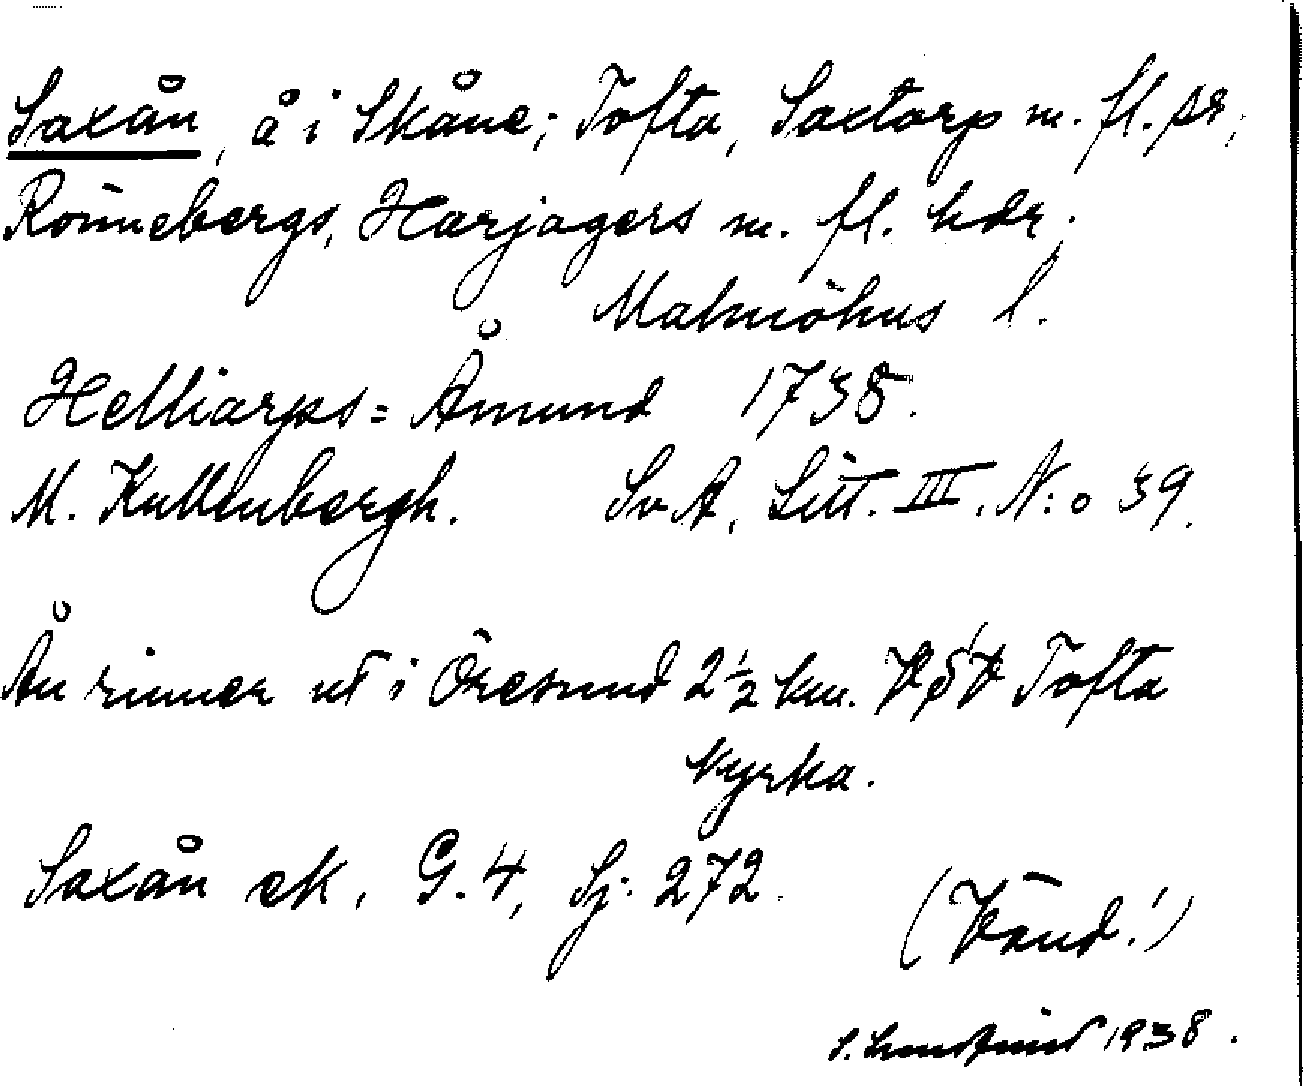 Saxån, å i Skåne; Tofta, Saxtorp m. fl. sr,
Rönnebergs, Harjagers m. fl. hdr.
Malmöhus l.
Helliarps= Åmund 1738.
M. Kullenbergh. Sv. A, Litt. III. N:o 39.
Ån rinner ut i Öresund 2½ km. VSV Tofta
kyrka.
Saxån ek. G. 4, Sj. 272.
(Vänd!)
1938.